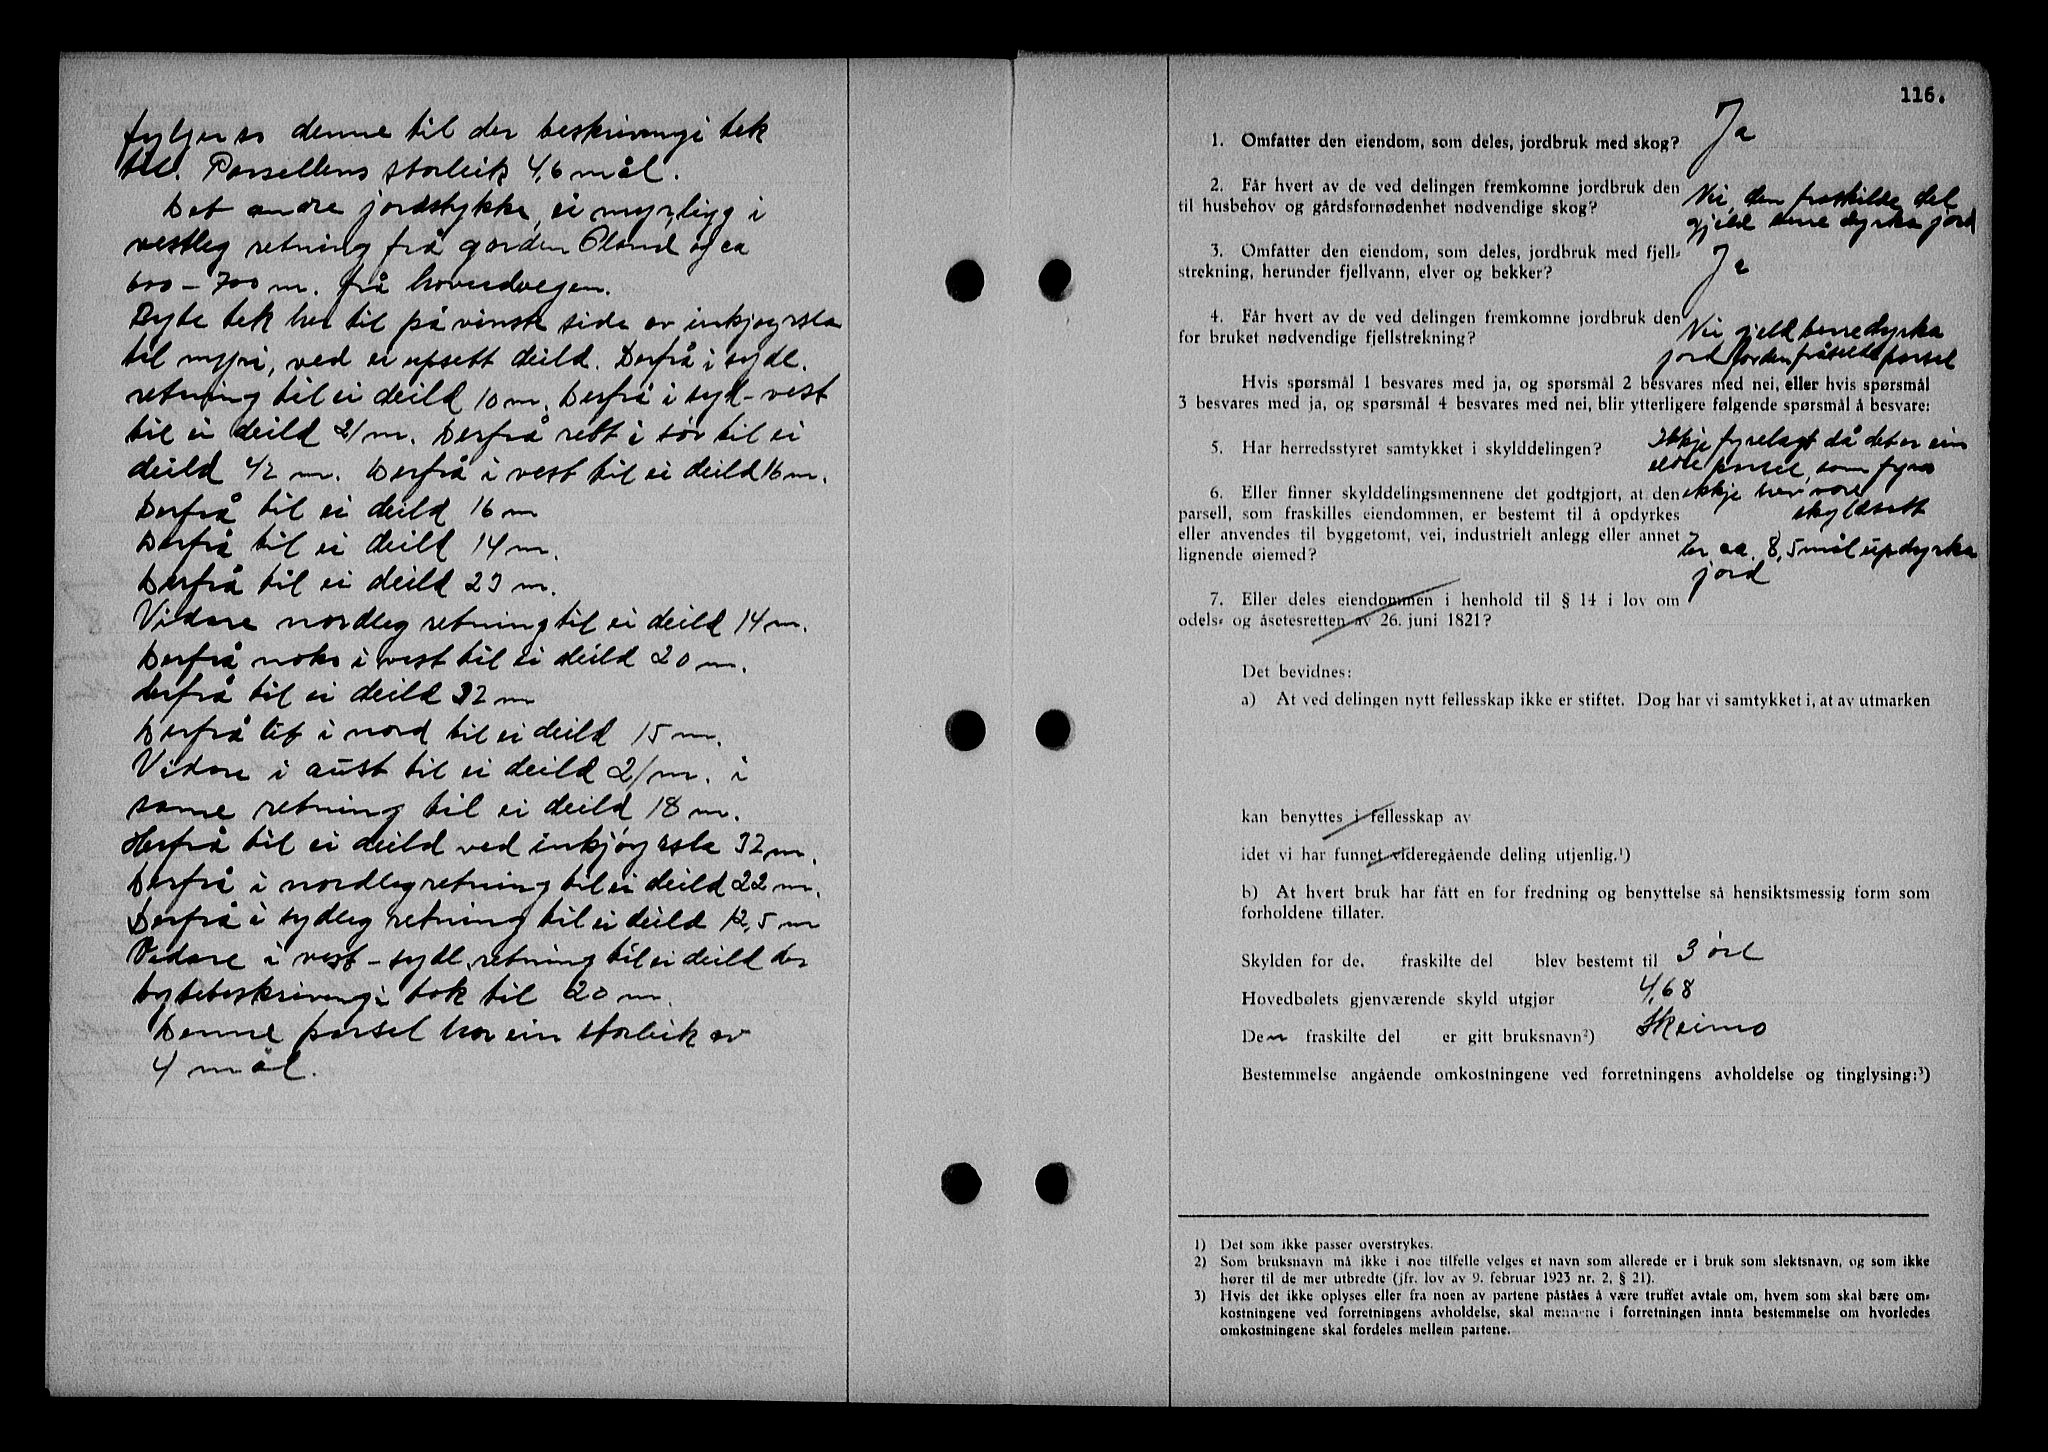 fylgjer so denne til der beskrivingi tek
til. Parsellens storleik 4,6 mål.
Det andre jordstykke, ei myrligg i
vestleg retning frå garden Øland og ca
600 – 700 m. frå hovudvegen.
Byte tek her til på vinstre side av inkjøyrsla
til myri, ved ei upsett deild. Derfrå i sydl.
retning til ei deild 10 m. Derfrå i syd-vest
til ei deild 21 m. Derfrå rett i sør til ei
deild 42 m. Derfrå i vest til ei deild 16 m.
Derfrå til ei deild 16 m
Derfrå til ei deild 14 m.
Derfrå til ei deild 23 m.
Vidare nordleg retning til ei deild 14 m.
Derfrå noko i vest til ei deild 20 m.
derfrå til ei deild 32 m
Derfrå litt i nord til ei deild 15 m.
Vidare i aust til ei deild 21 m. i
same retning til ei deild 18 m.
Herfrå til ei deild ved inkjøyrsla 32 m.
Derfrå i nordleg retning til ei deild 22 m.
Derfrå i sydleg retning til ei deild 12,5 m
Vidare i vest – sydl. retning til ei deild der
bytebeskrivingi tok til 20 m.
Denne parsel har ein storleik av
4 mål.
116.
1. Omfatter den eiendom, som deles, jordbruk med skog? Ja
2. Får hvert av de ved delingen fremkomne jordbruk den
til husbehov og gårdsfornødenhet nødvendige skog? Nei, den fraskilde del
gjeld berre dyrka jord
3. Omfatter den eiendom, som deles, jordbruk med fjell-
strekning, herunder fjellvann, elver og bekker? Ja
4. Får hvert av de ved delingen fremkomne jordbruk den
for bruket nødvendige fjellstrekning? Nei gjeld berre dyrka
jord for den fråskilde parsel
Hvis spørsmål 1 besvares med ja, og spørsmål 2 besvares med nei, eller hvis spørsmål
3 besvares med ja, og spørsmål 4 besvares med nei, blir ytterligere følgende spørsmål å besvare:
5. Har herredsstyret samtykket i skylddelingen? Ikkje fyrelagt då det er ein
eldre parsel, som fyrr
ikkje har vore
skyldsett
6. Eller finner skylddelingsmennene det godtgjort, at den
parsell, som fraskilles eiendommen, er bestemt til å opdyrkes
eller anvendes til byggetomt, vei, industrielt anlegg eller annet
lignende øiemed? Er ca. 8,5 mål updyrka
jord
7. Eller deles eiendommen i henhold til § 14 i lov om
odels- og åsetesretten av 26. juni 1821?
Det bevidnes:
a) At ved delingen nytt fellesskap ikke er stiftet. Dog har vi samtykket i, at av utmarken
kan benyttes i fellesskap av
idet vi har funnet videregående deling utjenlig.¹)
b) At hvert bruk har fått en for fredning og benyttelse så hensiktsmessig form som
forholdene tillater.
Skylden for de. fraskilte del blev bestemt til 3 øre
Hovedbølets gjenværende skyld utgjør 4,68
Den fraskilte del er gitt bruksnavn²) Skeimo
Bestemmelse angående omkostningene ved forretningens avholdelse og tinglysing:³)
1) Det som ikke passer overstrykes.
2) Som bruksnavn må ikke i noe tilfelle velges et navn som allerede er i bruk som slektsnavn, og som ikke
hører til de mer utbredte (jfr. lov av 9. februar 1923 nr. 2, § 21).
3) Hvis det ikke oplyses eller fra noen av partene påståes å være truffet avtale om, hvem som skal bære om-
kostningene ved forretningens avholdelse, skal mennene i forretningen innta bestemmelse om hvorledes
omkostningene skal fordeles mellem partene.